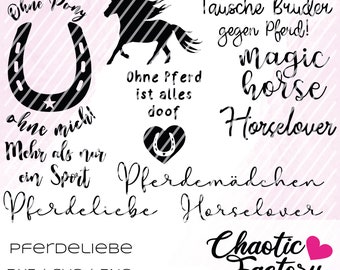 Ohne Pony
ohne mich!
Ohne Pferd
ist alles
doof
Tausche Bruder
gegen Pferd!
magic
horse
Horselover
Mehr als nur
ein Sport
Pferdemädchen
Pferdeliebe Horselover
PFERDELIEBE
Chaotic
Factory